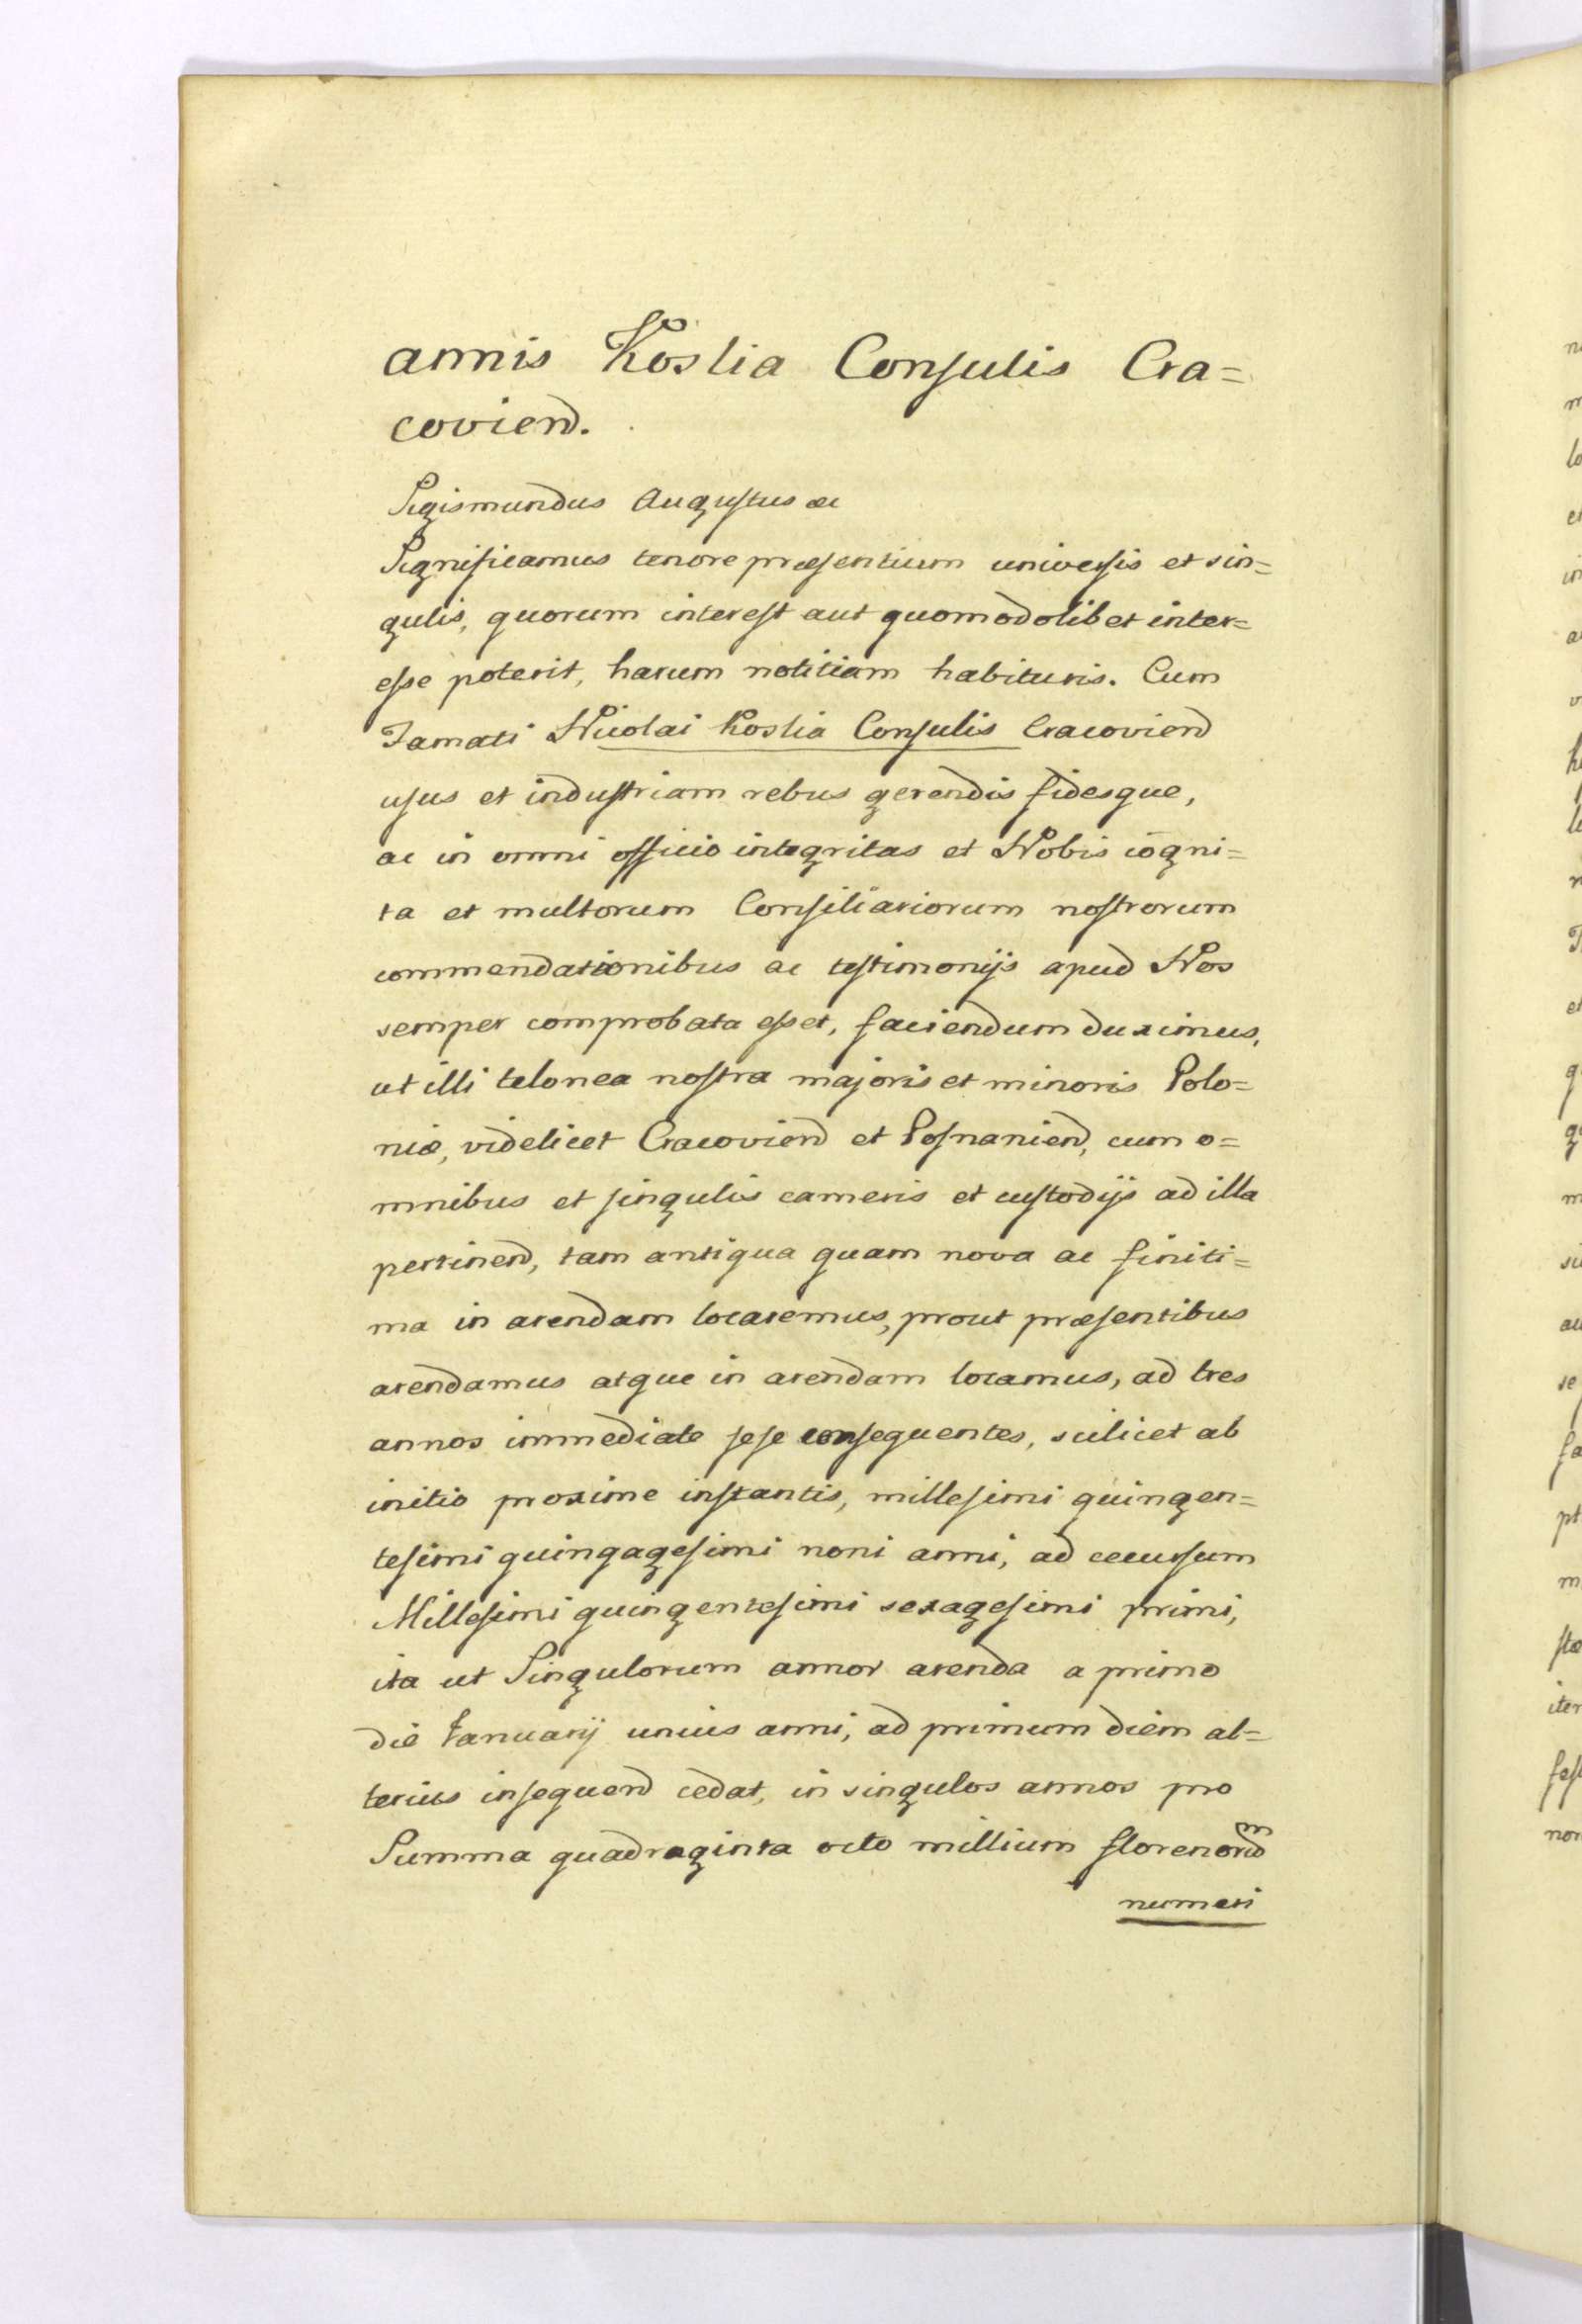 annis Koslia Consulis Cra=
coviend.
Sigismundus Augustus &c
Significamus tenore præsentium universis et sin=
gulis, quorum interest aut quomodolibet inter=
esse poterit, harum notitiam habituris. Cum
Famati Nicolai Koslia Consulis Cracoviend
usus et industriam rebus gerendis fidesque,
ac in omni officio integritas et Nobis cogni=
ta et multorum Consiliariorum nostrorum
commendationibus ac testimonijs apud Nos
semper comprobata esset, faciendum duximus,
ut illi telonea nostra majoris et minoris Polo=
niæ, videlicet Cracoviend et Posnaniend, cum o=
mnibus et singulis cameris et custodijs ad illa
pertinend, tam antiqua quam nova ac finiti=
ma in arendam locaremus, prout præsentibus
arendamus atque in arendam locamus, ad tres
annos immediate sese consequentes, scilicet ab
initio proxime instantis, millesimi quingen=
tesimi quingagesimi noni anni, ad cecursum
Millesimi quingentesimi sexagesimi primi,
ita ut Singulorum annor arenda a primo
die Januarij unius anni, ad primum diem al=
terius insequend cedat, in singulos annos pro
Summa quadraginta octo millium florenorum
numeri